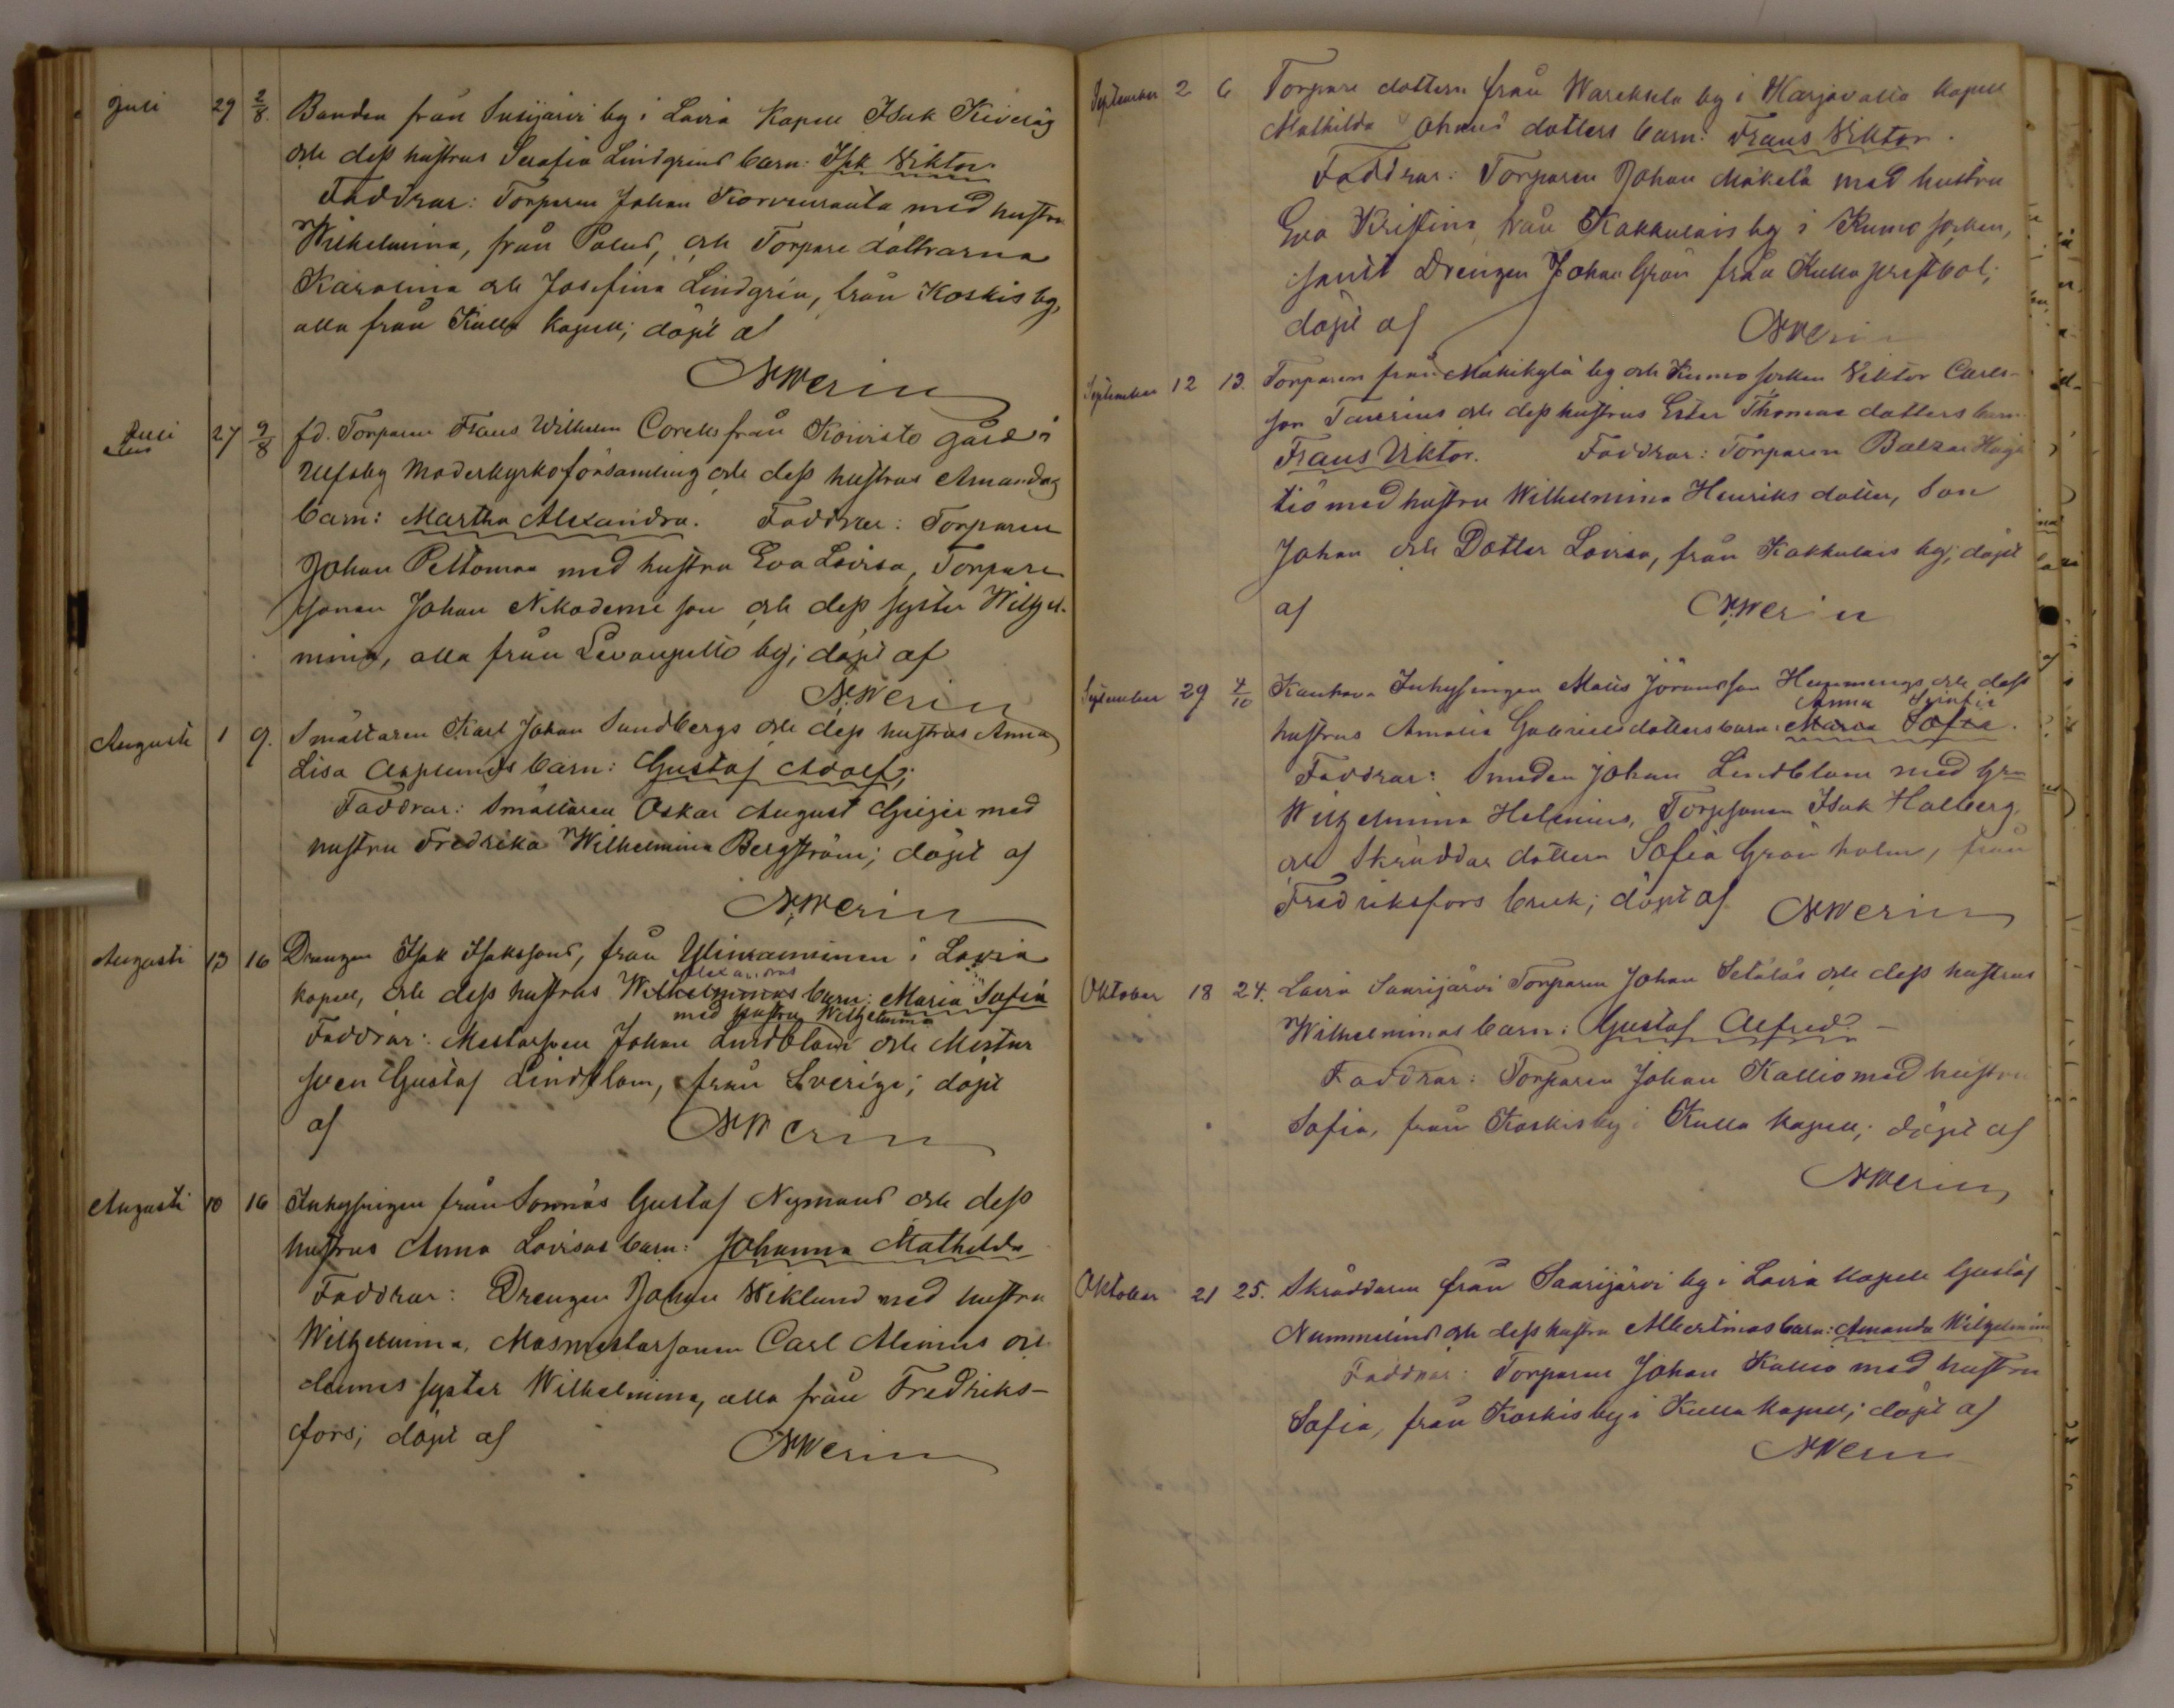 Juli 29 2/8. Bonden från Susijärvi by i Lavia Kapell Isak Kiveläs
och dess hustrus Serafia Lindgrens barn: Isak Viktor
Faddrar: Torparen Johan Korvenranta med hustru
Wilhelmina, från Palus, och Torpare döttrarna
Karolina och Josefina Lindgrén, från Koskis by,
alla från Kulla Kapell; döpt af
NWerin
Juli 27 9/8 fd. Torparen Frans Wilhelm Corells från Koivisto gård i
Ulfsby Moderkyrkoförsamling och dess hustrus Amandas
barn: Martha Alexandra. Faddrar: Torparen
Johan Peltomaa med hustru Eva Lovisa, Torpare
sonen Johan Nikodemi son och dess syster Wilhel-
mina, alla från Levanpelto by; döpt af
N.Werin
Augusti 1 9. Smältaren Karl Johan Sundbergs och dess hustrus Anna
Lisa Asplunds barn: Gustaf Adolf;
Faddrar: Smältaren Oskar August Geijer med
hustru Fredrika Wilhelmina Bergström; döpt af
N.Werin
Augusti 13 16 Drengen Isak Isakssons, från Ylinanminen i Lavia
Alexandras
kapell, och dess hustrus Wilhelminas barn: Maria Sofia
med hustru Wilhelmina
Faddrar: Mästarsven Johan Lindblom och Mästar
sven Gustaf Lindblom, från Sverige; döpt
af NWerin
Augusti 10 16 Inhysingen från Sonnäs Gustaf Nymans och dess
hustrus Anna Lovisas barn: Johanna Mathilda
Faddrar: Drengen Johan Wiklund med hustru
Wilhelmina, Masmästarsonen Carl Alenius och
dennes syster Wilhelmina, alla från Fredriks-
fors; döpt af NWerin
September 2 6 Torpare dottern från Wareksela by i Harjavalla kapell
Mathilda Johans dotters barn: Frans Viktor.
Faddrar: Torparen Johan Mäkelä med hustru
Eva Kristina från Kakkulais by i Kumo socken,
samt Drengen Johan Grön från Kulla prestbol;
döpt af NWerin
September 12 13. Torparen från Mäkikylä by och Kumo socken Viktor Carls-
son Tanerius och dess hustrus Ester Thomas dotters barn
Frans Viktor. Faddrar: Torparen Balzar Haja
tio med hustru Wilhelmina Henriks dotter, Son
Johan och Dotter Lovisa, från Kakkulais by; döpt
af N.Werin
September 29 4/10 Kanhava Inhysingen Matts Jöransson Hemmings och dess
Anna Serafia
hustrus Amalia Gabrielsdotters barn: Maria Sofia.
Faddrar: Smeden Johan Lindblom med hru
Wilhelmina Helenius, Torpsonen Isak Halberg,
och Skräddar dottern Sofia Grönholm, från
Fredriksfors bruk; döpt af NWerin
Oktober 18 24. Lavia Saarijärvi Torparen Johan Setäläs och dess hustrus
Wilhelminas barn: Gustaf Alfred. –
Faddrar: Torparen Johan Kallio med hustru
Sofia, från Koskis by i Kulla kapell; döpt af
NWerin
Oktober 21 25. Skräddaren från Saarijärvi by i Lavia kapell Gustaf
Nummelins och dess hustru Albertinas barn: Amanda Wilhelmin
Faddrar: Torparen Johan Kallio med hustru
Sofia, från Koskis by i Kulla kapell; döpt af
NWerin